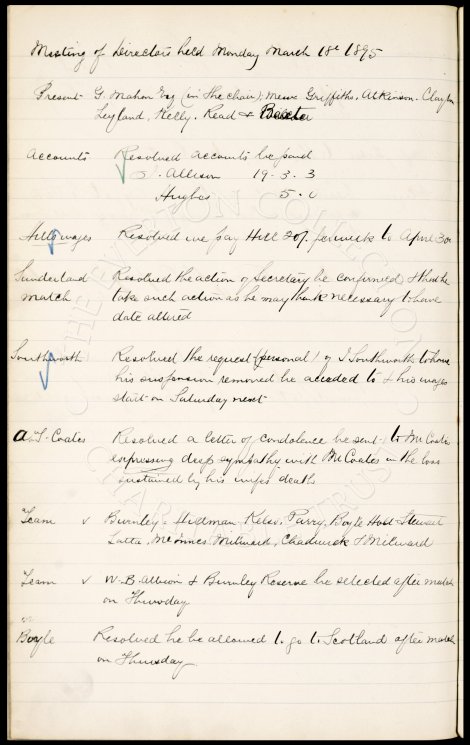 Meeting of Directors held Monday March 18th 1895
Present G. Mahon Esq (in the chair), Messrs Griffiths, Atkinson, Clayton
Leyland, Kelly, Read & Baxter
Accounts Resolved accounts be paid
J. Allison 19 - 3 . 3
Hughes 5 - 0
Hill wages Resolved we pay Hill 20/- per week to April 30
Sunderland Resolved the action of Secretary be confirmed & that he
match take such action as he may think necessary to have
date altered
Southworth Resolved the request (personal) of J Southworth to have
his suspension removed be acceded to & his wages
start on Saturday next
A. T. Coates Resolved a letter of condolence be sent to Mr Coates
expressing deep sympathy with Mr Coates in the loss
sustained by his wifes death
Team v Burnley. Kelso, Parry, Boyle Holt Stewart
Latta, McInnes, Milward, Chadwick & Milward
Team v W. B. Albion & Burnley Reserve be selected after match
on Thursday
Boyle Resolved he be allowed to go to Scotland after match
on Thursday
THE EVERTON COLLECTION
CHARITABLE TRUST